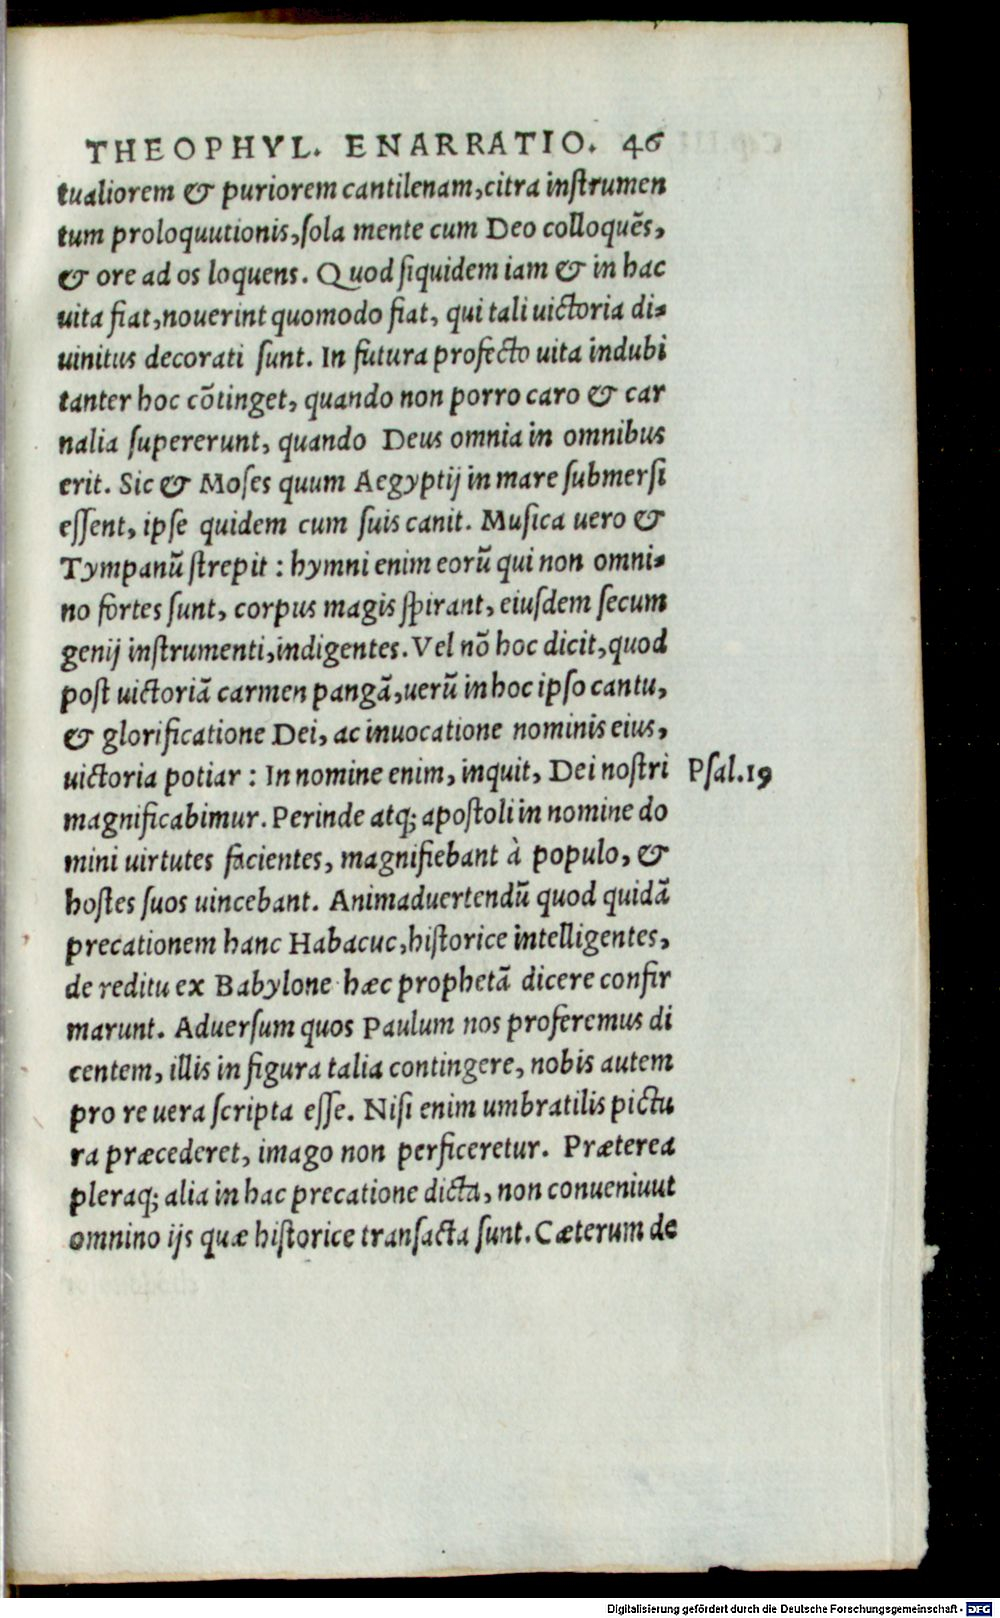 THEOPHYL. ENARRATIO. 46
tualiorem & puriorem cantilenam, citra instrumen
tum proloquutionis, sola mente cum Deo colloquēs,
& ore ad os loquens. Quod siquidem iam & in hac
uita fiat, nouerint quomodo fiat, qui tali uictoria di-
uinitus decorati sunt. In futura profecto uita indubi
tanter hoc cōtinget, quando non porro caro & car
nalia supererunt, quando Deus omnia in omnibus
erit. Sic & Moses quum Aegyptij in mare submersi
essent, ipse quidem cum suis canit. Musica uero &
Tympanū strepit : hymni enim eorū qui non omni-
no fortes sunt, corpus magis spirant, eiusdem secum
genij instrumenti, indigentes. Vel nō hoc dicit, quod
post uictoriā carmen pangā, uerū in hoc ipso cantu,
& glorificatione Dei, ac inuocatione nominis eius,
uictoria potiar : In nomine enim, inquit, Dei nostri Psal.19
magnificabimur. Perinde atq; apostoli in nomine do
mini uirtutes facientes, magnifiebant à populo, &
hostes suos uincebant. Animaduertendū quod quidā
precationem hanc Habacuc, historice intelligentes,
de reditu ex Babylone hæc prophetā dicere confir
marunt. Aduersum quos Paulum nos proferemus di
centem, illis in figura talia contingere, nobis autem
pro re uera scripta esse. Nisi enim umbratilis pictu
ra præcederet, imago non perficeretur. Præterea
pleraq; alia in hac precatione dicta, non conueniuut
omnino ijs quæ historice transacta sunt. Cæterum de
Digitalisierung gefördert durch die Deutsche Forschungsgemeinschaft - DFG